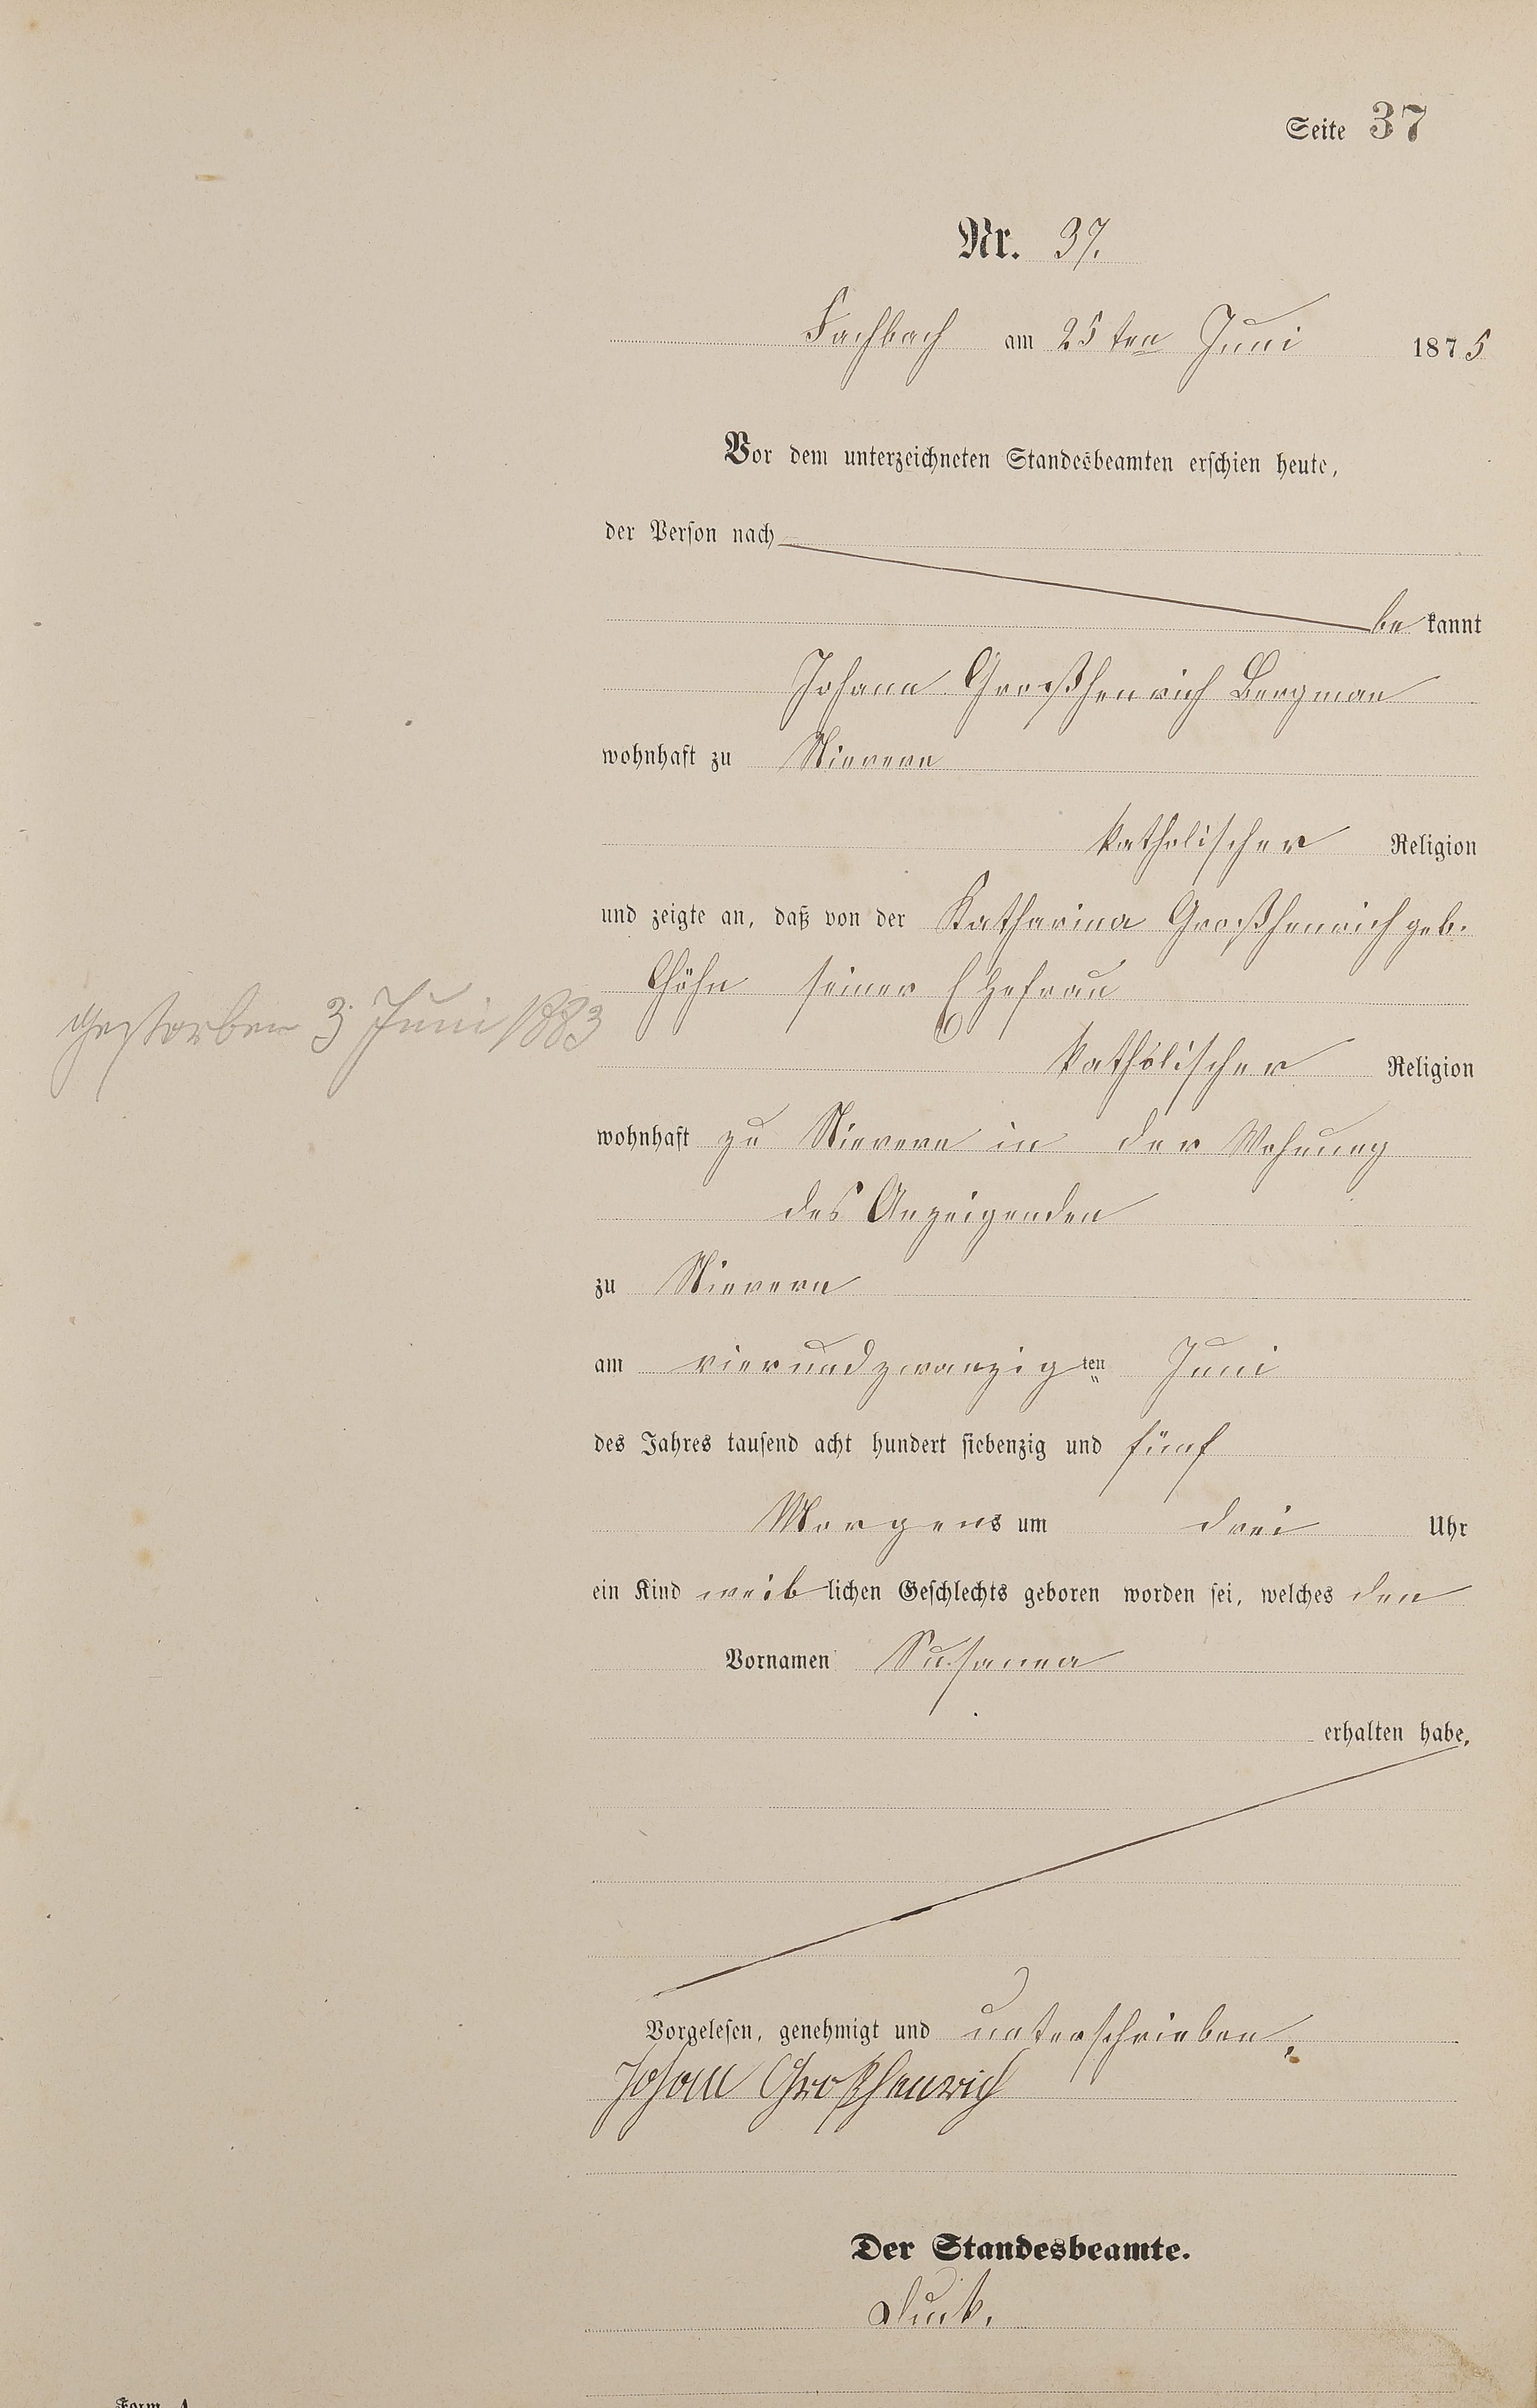 Seite 37
Nr. 37.
Fachbach am 25ten Juni 1875
Vor dem unterzeichneten Standesbeamten erschien heute,
der Person nach
bekannt
Johann Großhenrich Bergman
wohnhaft zu Nievern
katholischer Religion
und zeigte an, daß von der Katharina Großhenrich geb.
seiner Ehefrau
gestorben 3 Juni 1883
katholischer Religion
wohnhaft zu Nievern in der Wohnung
des Anzeigenden
zu Nievern
am vierundzwanzigten Juni
des Jahres tausend acht hundert siebenzig und fünf
Morgens um drei Uhr
ein Kind weiblichen Geschlechts geboren worden sei, welches den
Vornamen Susanna
erhalten habe,
Vorgelesen, genehmigt und unterschrieben.
Johann Großhenrich
Der Standesbeamte.
Form A